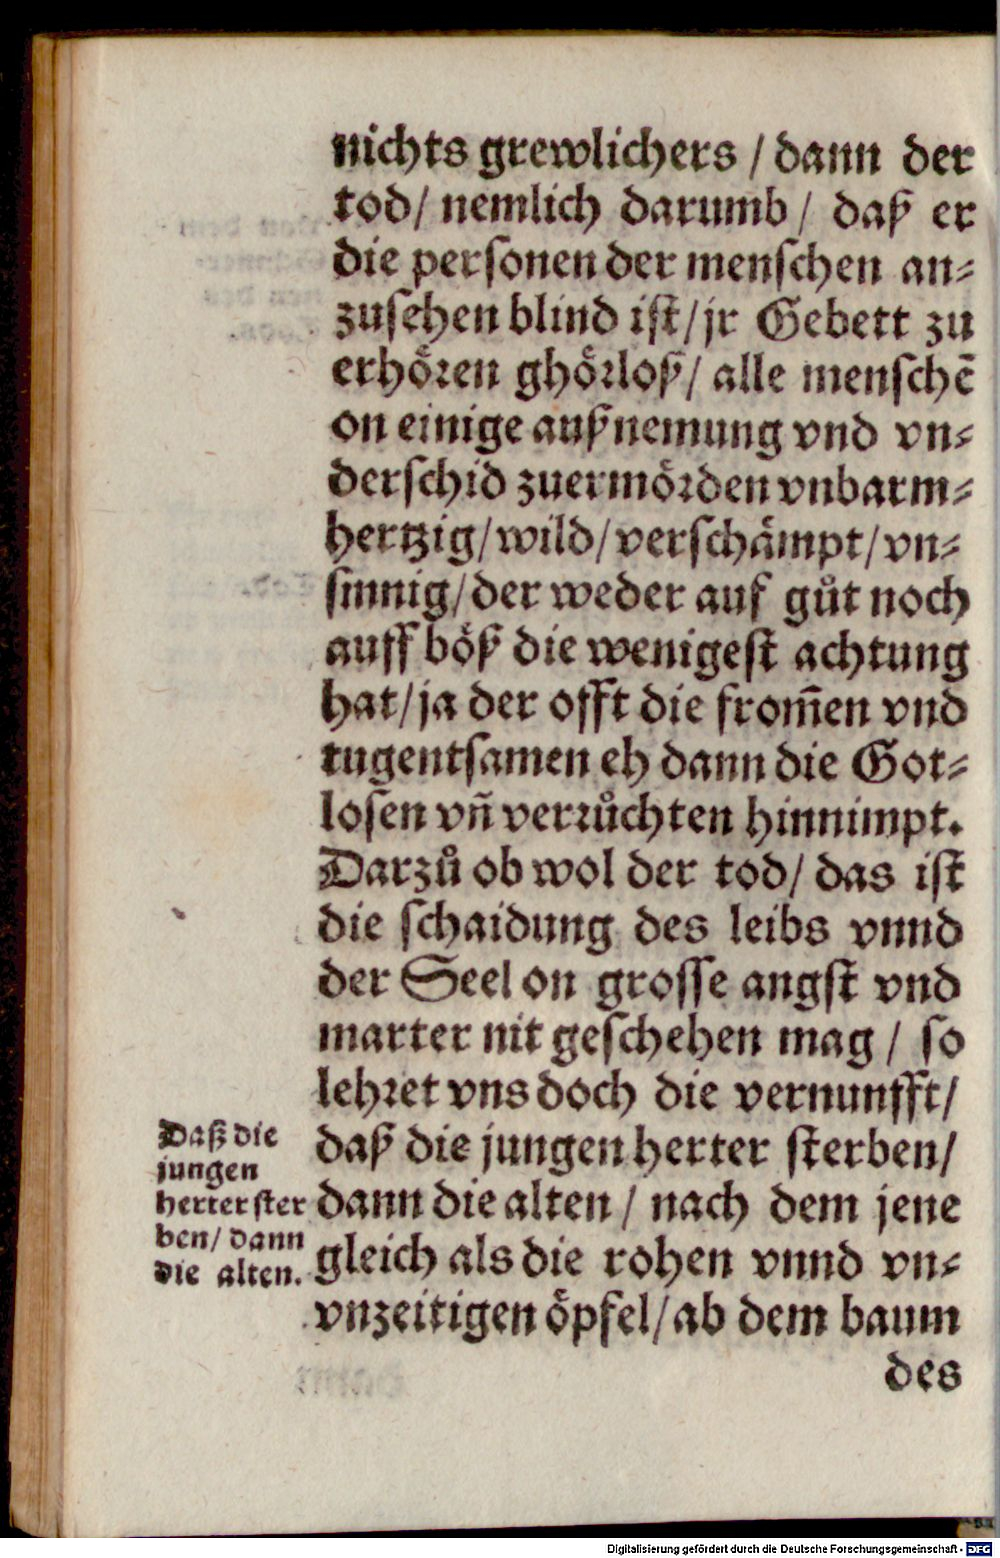 nichts grewlichers / dann der
tod / nemlich darumb / daß er
die personen der menschen an⸗
zusehen blind ist / jr Gebett zu
erhoͤren ghoͤrloß / alle menschẽ
on einige außnemung vnd vn⸗
derschid zuermoͤrden vnbarm⸗
hertzig / wild / verschaͤmpt / vn⸗
sinnig / der weder auf guͦt noch
auff boͤß die wenigest achtung
hat / ja der offt die from̃en vnd
tugentsamen eh dann die Got⸗
losen vñ verruͦchten hinnimpt.
Darzuͦ ob wol der tod / das ist
die schaidung des leibs vnnd
der Seel on grosse angst vnd
marter nit geschehen mag / so
lehret vns doch die vernunfft /
daß die jungen herter sterben /
dann die alten / nach dem jene
gleich als die rohen vnnd vn⸗
vnzeitigen oͤpfel / ab dem baum
des
Daß die
jungen
herter ster
ben / dann
die alten.
Digitalisierung gefördert durch die Deutsche Forschungsgemeinschaft - DFG